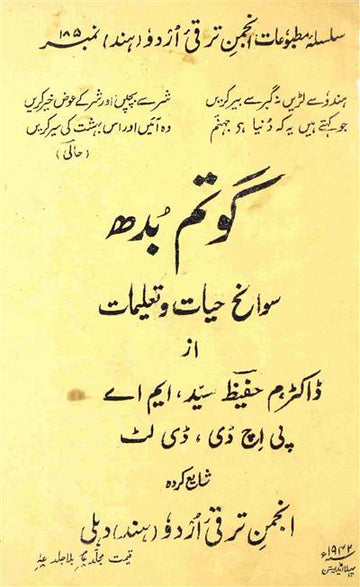 سلسلہ مطبوعات انجمن ترقیٔ اُردوٗ (ہند) نمبر ۱۸۵
ہندوٗ سے لڑیں نہ گبر سے بیر کریں
شر سے بچیں اور شر کے عوض خیر کریں
جو کہتے ہیں یہ کہ دُنیا ہے جہنّم
وہ آئیں اور اس بہشت کی سیر کریں
(حالی)
گوتم بُدھ
سوانح حیات و تعلیمات
از
ڈاکٹر م حفیظ سیّد، ایم اے
پی اِچ ڈی، ڈی لٹ
شایع کردہ
انجمن ترقی اُردوٗ (ہند) دہلی
۱۹۴۲ء
پہلا اڈیشن
قیمت مجلد بلا جلد